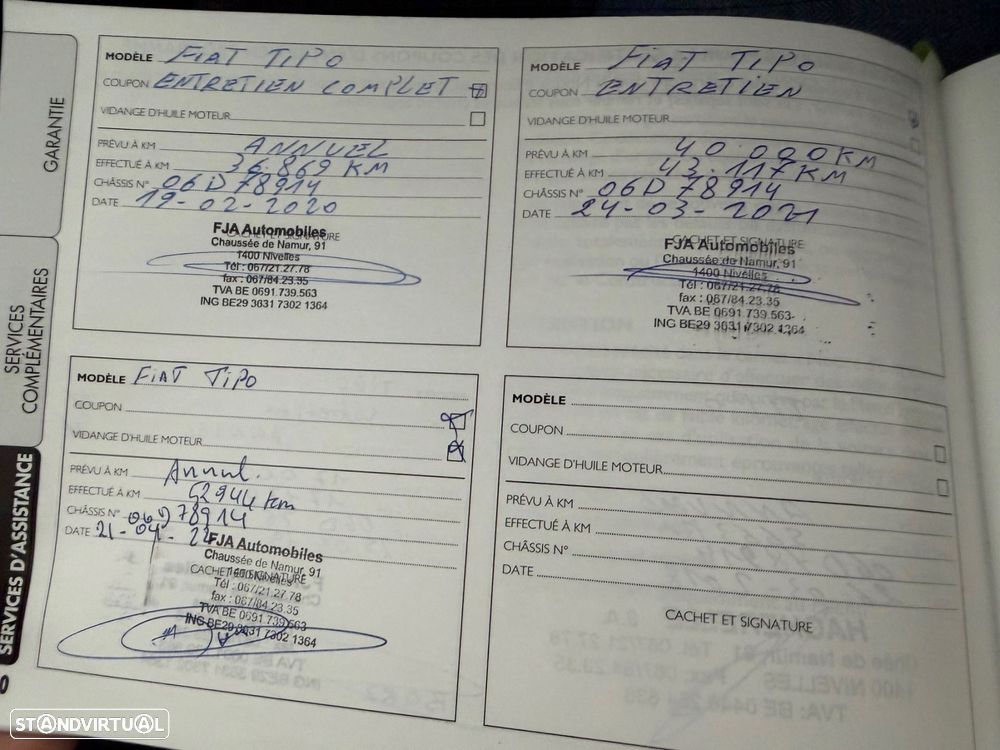 GARANTIE
SERVICES
COMPLÉMENTAIRES
SERVICES D'ASSISTANCE
MODÈLE FIAT TIPO
COUPON ENTRETIEN COMPLET
VIDANGE D'HUILE MOTEUR
PRÉVU À KM ANNUEL
EFFECTUÉ À KM 36.869 KM
CHÂSSIS N° 06D78914
DATE 19-02-2020
CACHET ET SIGNATURE
FJA Automobiles
Chaussée de Namur, 91
1400 Nivelles
Tél : 067/21.27.78
fax : 067/84.23.35
TVA BE 0691.739.563
ING BE29 3631 7302 1364
MODÈLE FIAT TIPO
COUPON ENTRETIEN
VIDANGE D'HUILE MOTEUR
PRÉVU À KM 40 000 KM
EFFECTUÉ À KM 43.117 KM
CHÂSSIS N° 06D78914
DATE 24-03-2021
CACHET ET SIGNATURE
FJA Automobiles
Chaussée de Namur, 91
1400 Nivelles
Tél : 067/21.27.78
fax : 067/84.23.35
TVA BE 0691.739.563
ING BE29 3631 7302 1364
MODÈLE FIAT TIPO
COUPON
VIDANGE D'HUILE MOTEUR
PRÉVU À KM Annuel.
EFFECTUÉ À KM 52944 km
CHÂSSIS N° 06D78914
DATE 21-04-22
FJA Automobiles
Chaussée de Namur, 91
CACHET ET SIGNATURE
1400 Nivelles
Tél : 067/21.27.78
fax : 067/84.23.35
TVA BE 0691.739.563
ING BE29 3631 7302 1364
MODÈLE
COUPON
VIDANGE D'HUILE MOTEUR
PRÉVU À KM
EFFECTUÉ À KM
CHÂSSIS N°
DATE
CACHET ET SIGNATURE
STANDVIRTUAL